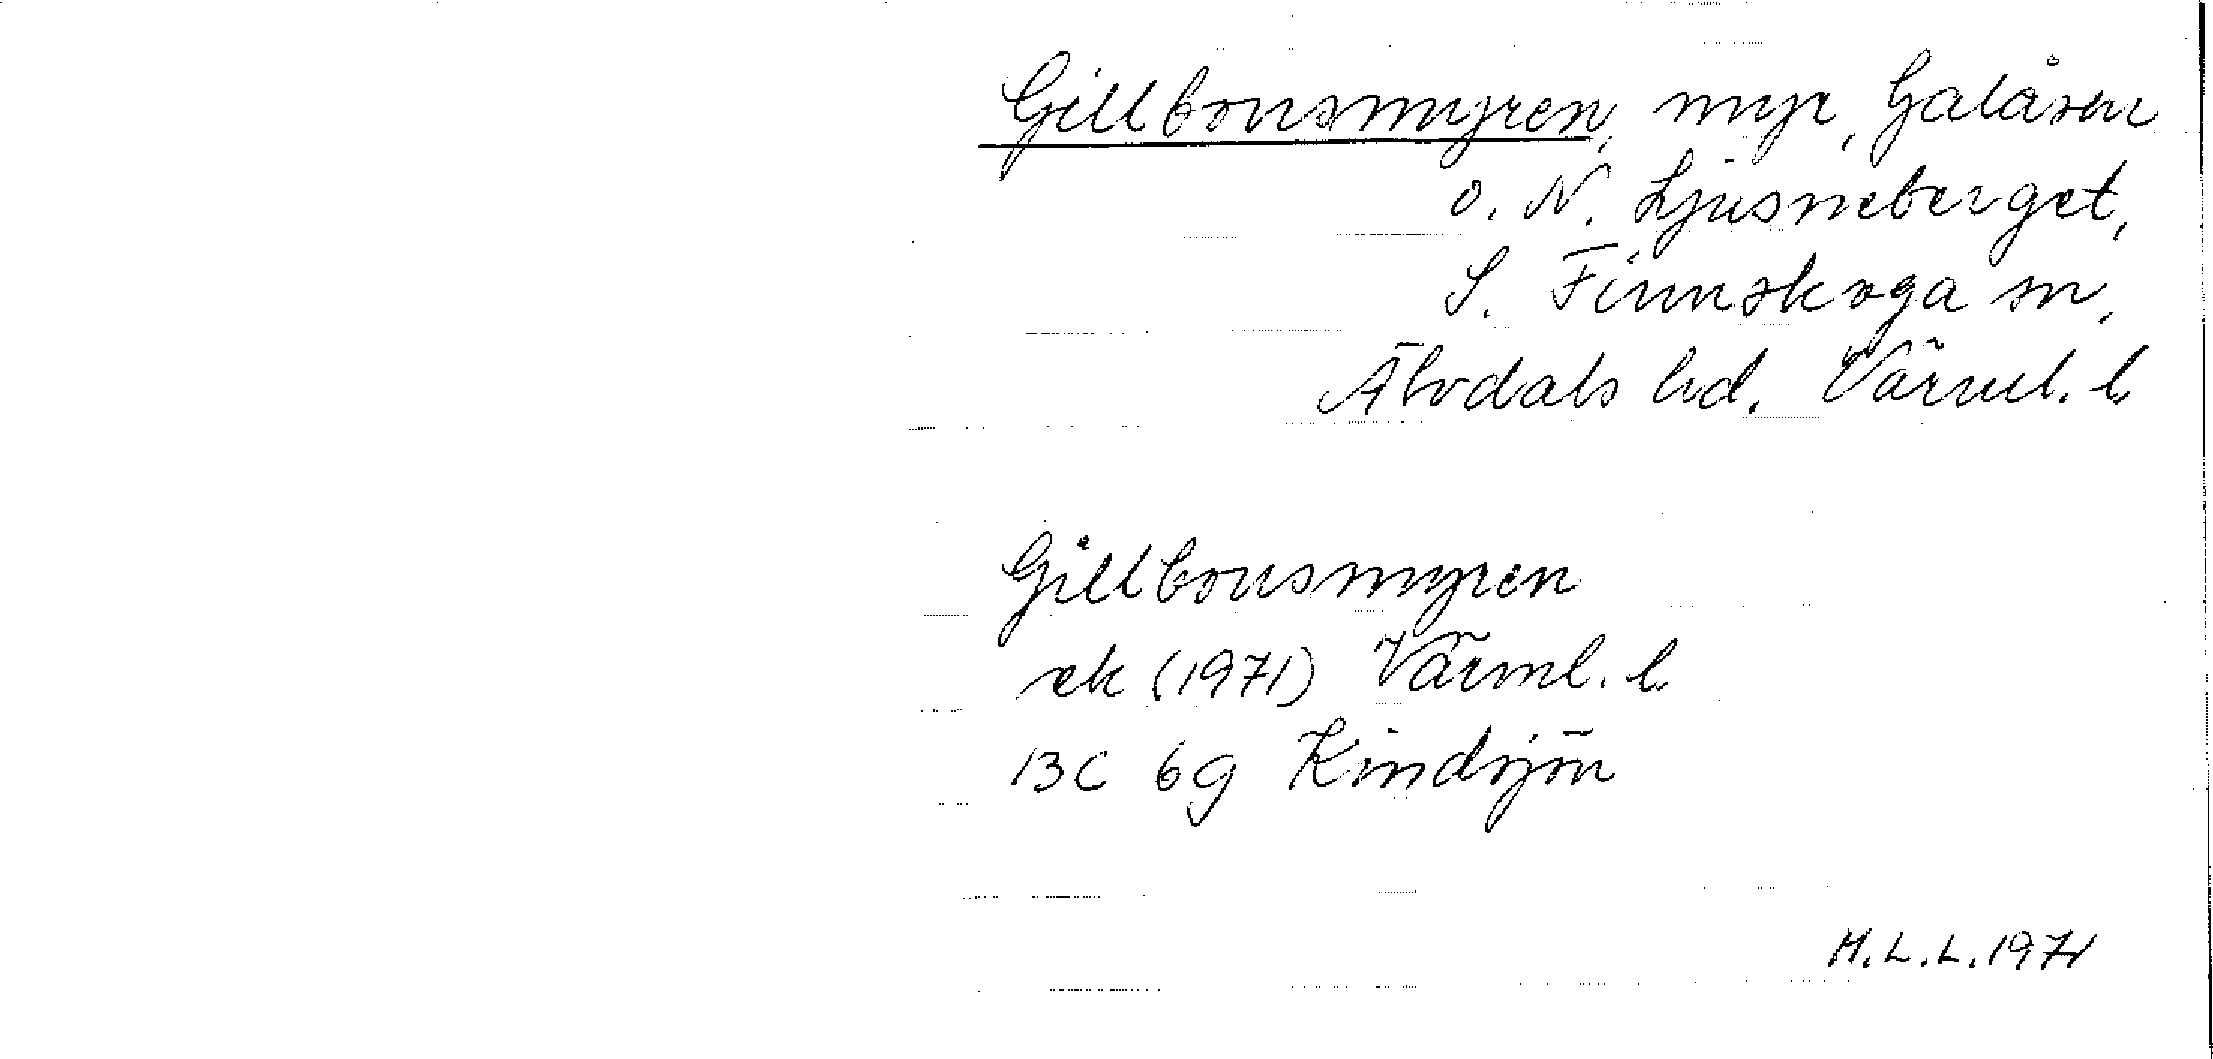 Gillbonsmyren, myr, Galåsen
o. N. Ljusneberget,
S. Finnskoga sn,
Älvdals hd. Värml. l.
Gillbonsmyren
ek (1971) Värml. l.
13C 6g Kindsjön
M.L.L. 1971